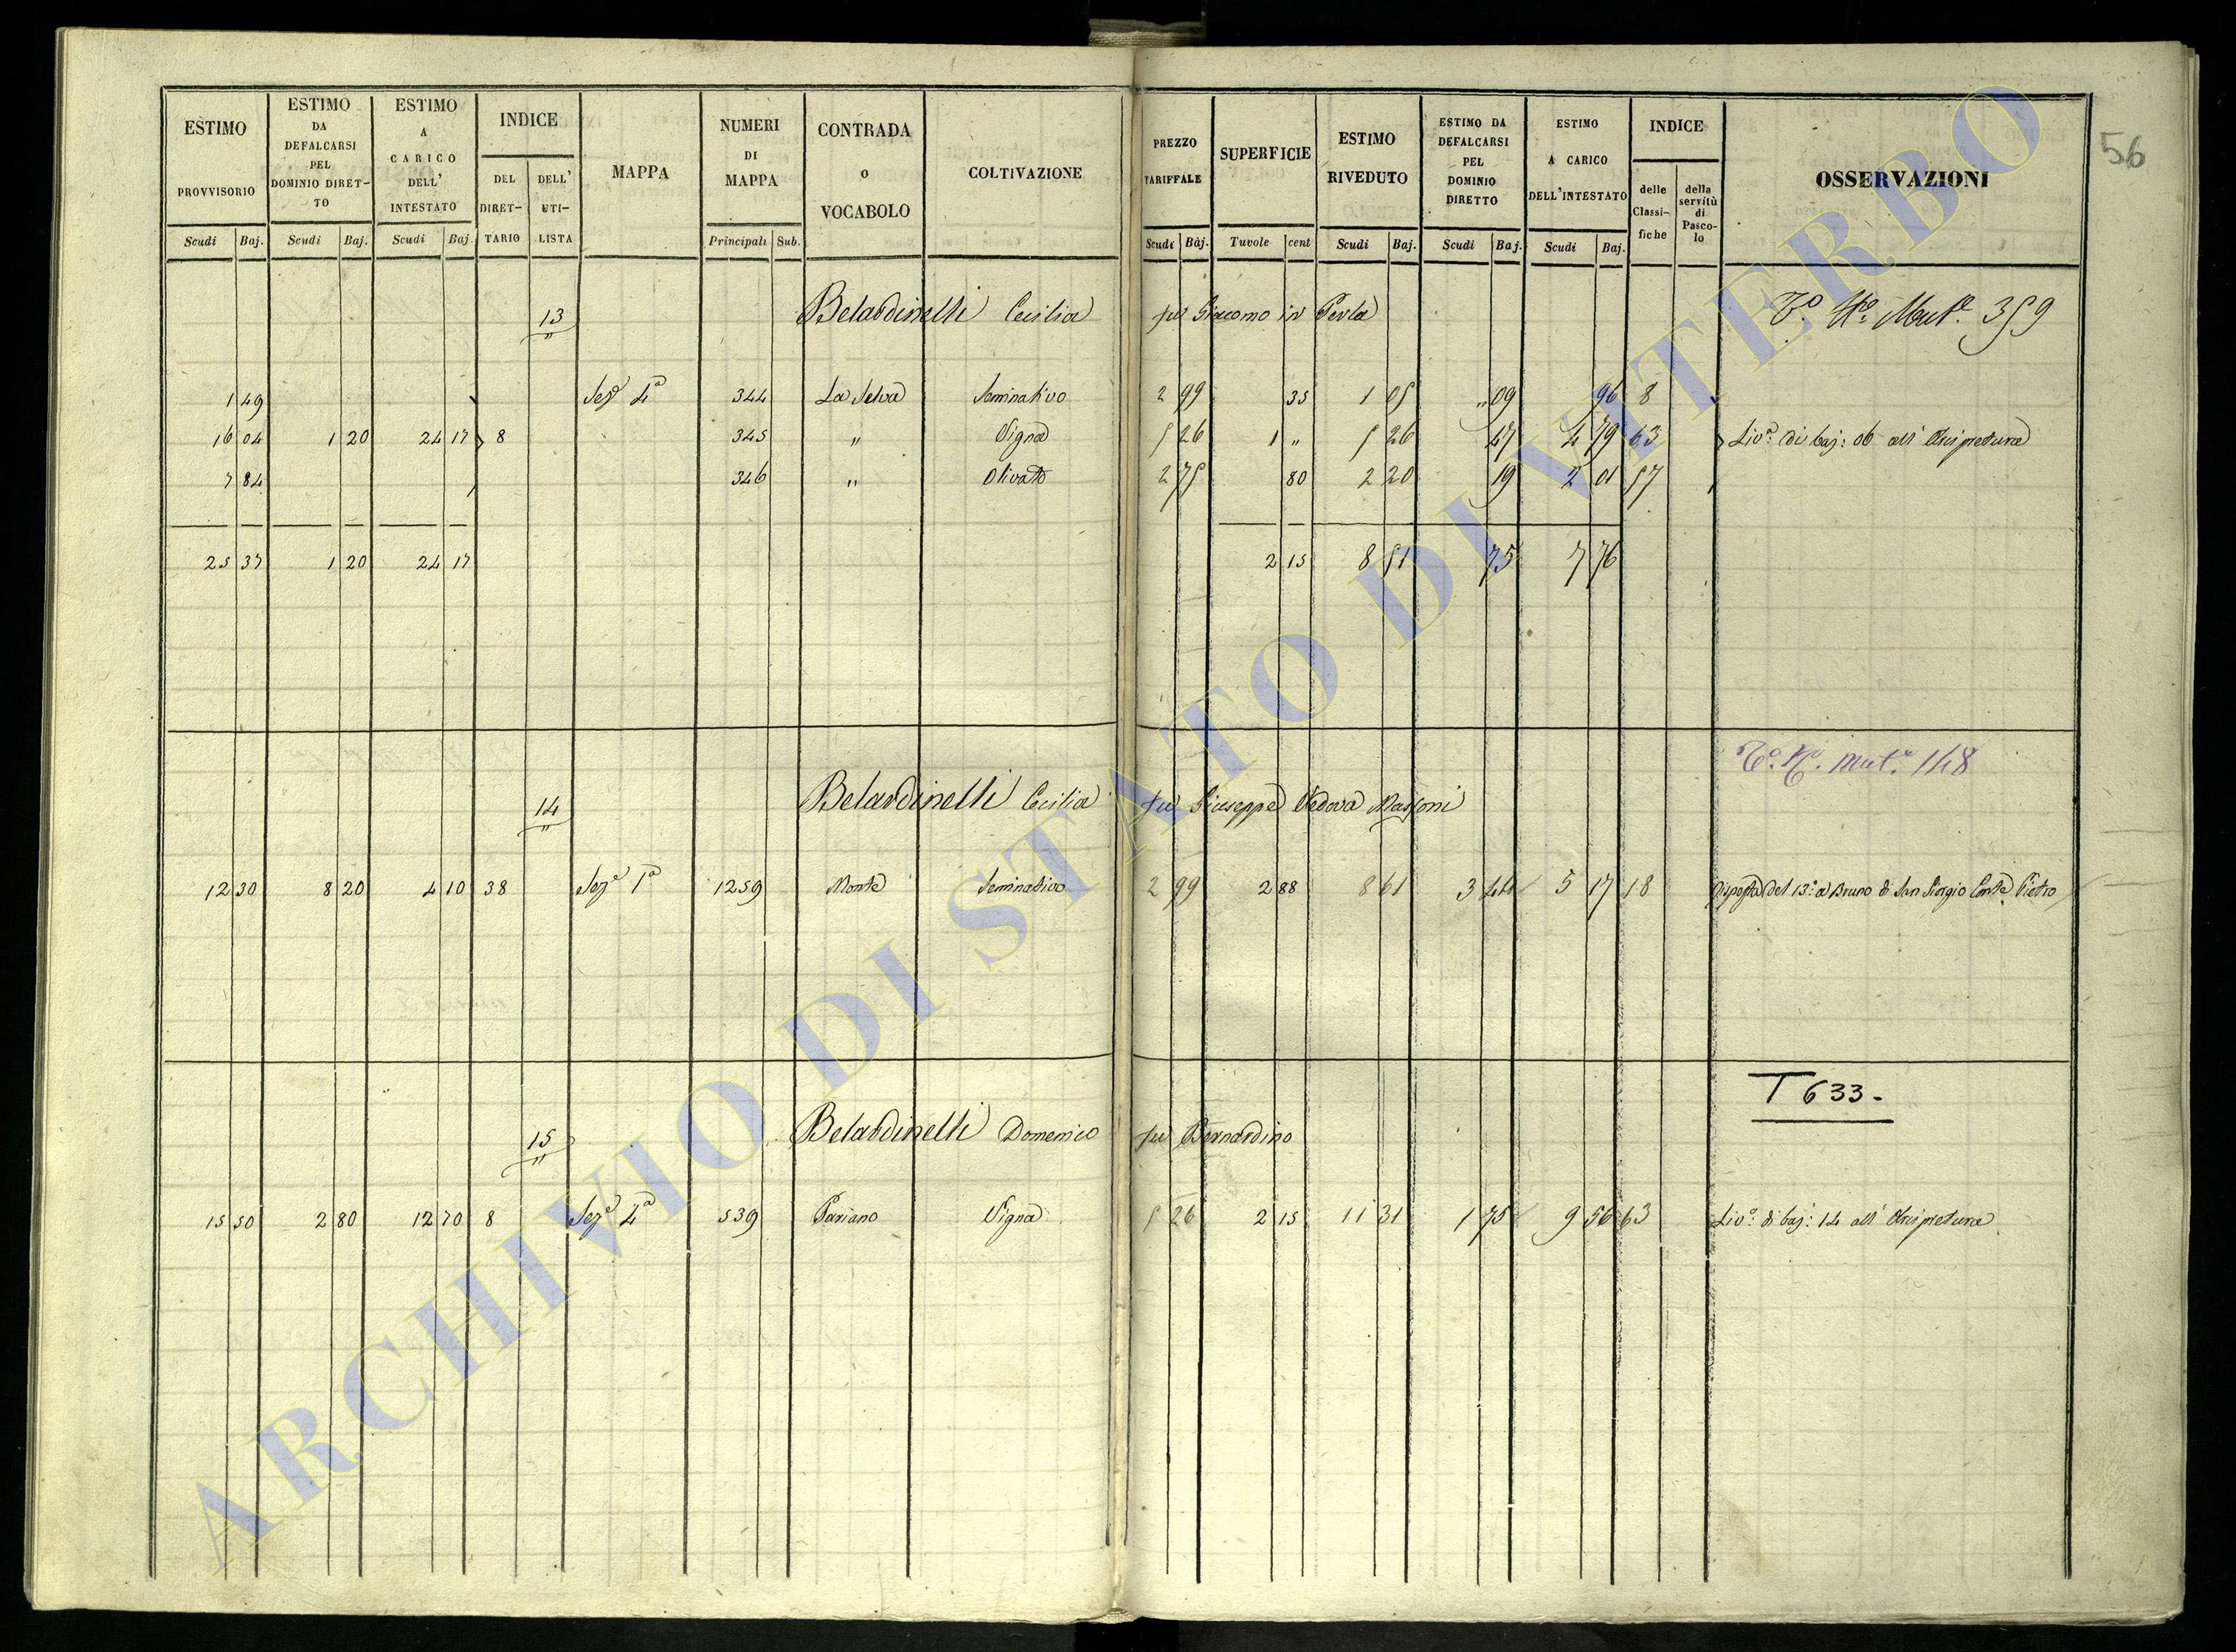 56
ESTIMO PROVVISORIO | ESTIMO DA DEFALCARSI PEL DOMINIO DIRETTO | ESTIMO A CARICO DELL' INTESTATO | INDICE DEL DIRETTARIO | DELL' UTILISTA | MAPPA | NUMERI DI MAPPA | CONTRADA O VOCABOLO | COLTIVAZIONE | PREZZO TARIFFALE | SUPERFICIE | ESTIMO RIVEDUTO | ESTIMO DA DEFALCARSI PEL DOMINIO DIRETTO | ESTIMO A CARICO DELL'INTESTATO | INDICE delle Classifiche | della servitù di Pascolo | OSSERVAZIONI
Scudi Baj. | Scudi Baj. | Scudi Baj. | Principali Sub. | Scudi Baj. | Tavole cent | Scudi Baj. | Scudi Baj. | Scudi Baj.
13 Belardinelli Cecilia fu Giacomo in Perla Vo. No. Muta. 359
1 49 Seze 4a 344 La Selva Seminativo 2 99 35 1 05 " 09 96 8
16 04 1 20 24 17 8 345 " Vigna 5 26 1 " 5 26 47 4 79 63 Livo. di baj: 06 all' Arcipretura
7 84 346 " Olivato 2 75 80 2 20 19 2 01 57
25 37 1 20 24 17 2 15 8 51 75 7 76
Vo. No. Muta. 148
14 Belardinelli Cecilia fu Giuseppe Vedova Massoni
12 30 8 20 4 10 38 Seze 1a 1259 Monte Seminativo 2 99 2 88 8 61 3 44 5 17 18 Risposta del 13o a Bruno di San Giorgio Conte Pietro
T 633-
15 Belardinelli Domenico fu Bernardino
15 50 2 80 12 70 8 Seze 4a 539 Pariano Vigna 5 26 2 15 11 31 1 75 9 56 63 Livo. di baj: 14 all' Arcipretura
ARCHIVIO DI STATO DI VITERBO